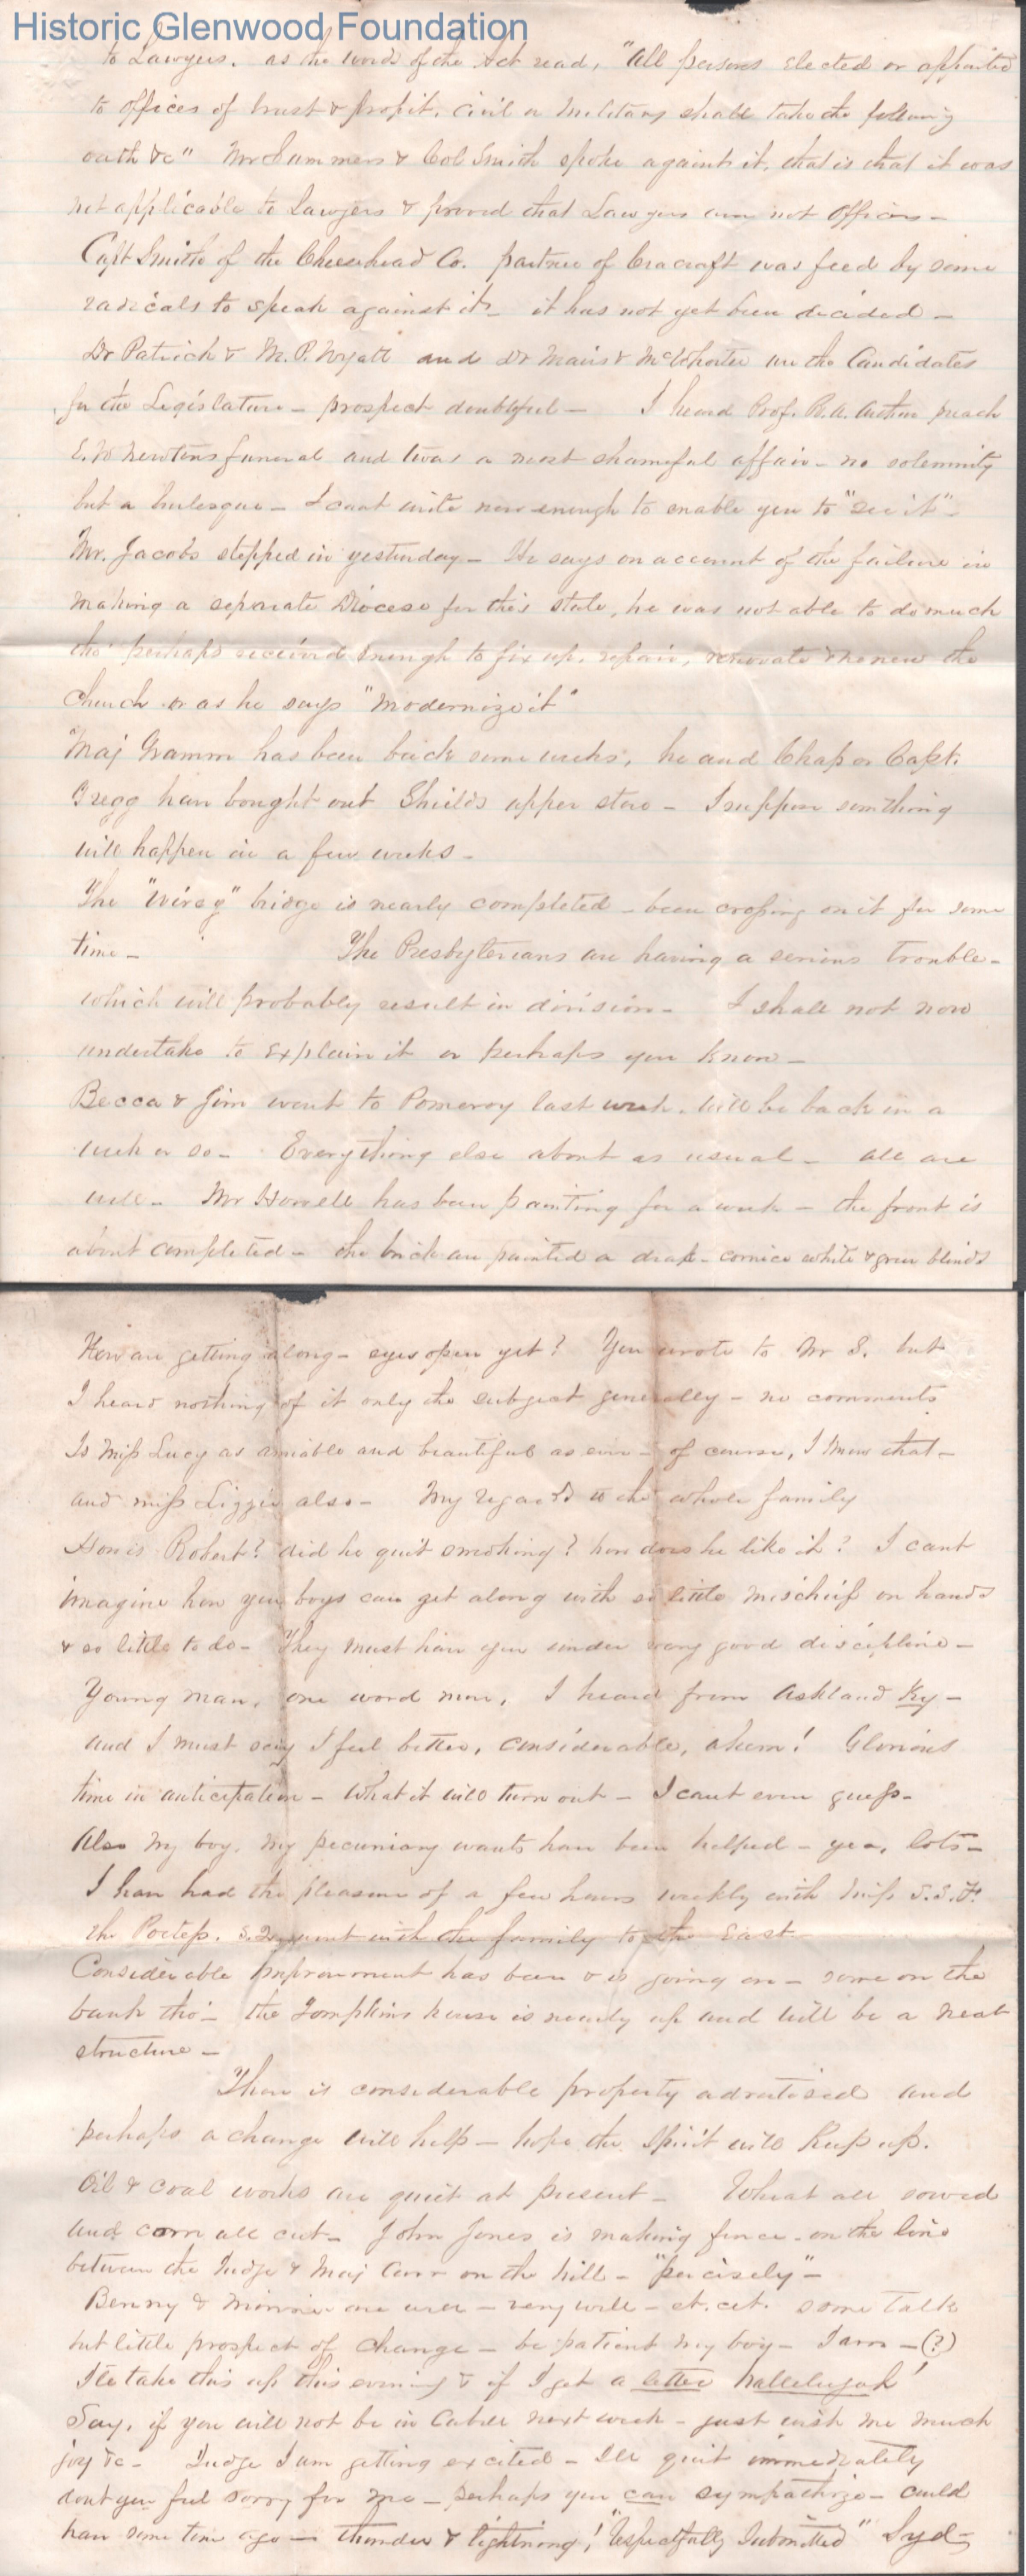 Historic Glenwood Foundation
to Lawyers. as the words of the Act read, "All persons elected or appointed
to offices of trust & profit, civil or military shall take the following
oath &c" Mr Summers & Col Smith spoke against it, that is that it was
not applicable to Lawyers & proved that Lawyers are not officers -
Capt Smith of the Cheesehead Co. partner of Cracraft was feed by some
radicals to speak against it - it has not yet been decided -
Dr Patrick & M. P. Wyatt and Dr & McWhorter are the Candidates
for the Legislature - prospect doubtful - I heard Prof. R. A. preach
E. W Newtons funeral and twas a most shameful affair - no solemnity
but a burlesque - I cant write now enough to enable you to "see it" -
Mr. Jacobs stepped in yesterday - He says on account of the failure in
making a separate Diocese for this state, he was not able to do much
tho' perhaps received enough to fix up, repair, renovate & renew the
church or as he says "modernize it"
Maj Gramm has been back some weeks, he and Chap or Capt.
Gregg have bought out Shields upper store - I suppose something
will happen in a few weeks -
The "wirey" bridge is nearly completed - been crossing on it for some
time - The Presbyterians are having a serious trouble -
which will probably result in division - I shall not now
undertake to explain it or perhaps you know -
Becca & Jim went to Pomeroy last week. will be back in a
week or so - Everything else about as usual - all are
well - Mr Howell has been painting for a week - the front is
about completed - the brick are painted a drab - cornice white & green blinds
How are getting along - eyes open yet? You wrote to Mr S. but
I heard nothing of it only the subject generally - no comments
Is Miss Lucy as amiable and beautiful as ever - of course, I knew that -
and miss Lizzie also - My regards to the whole family
How is Robert? did he quit smoking? how does he like it? I cant
imagine how you boys can get along with so little mischief on hands
& so little to do - They must have you under very good discipline -
Young man, one word more, I heard from Ashland Ky -
and I must say I feel better, considerable, ahem! Glorious
time in anticipation - What it will turn out - I cant even guess -
Also my boy, my pecuniary wants have been helped - yea, lots -
I have had the pleasure of a few hours weekly with Miss S. S. F.
the Poetess. went with the family to the East
Considerable improvement has been & is going on - some on the
bank tho' - the Tompkins house is nearly up and will be a neat
structure -
There is considerable property advertised and
perhaps a change will help - hope the spirit will keep up.
Oil & coal works are quiet at present - Wheat all sowed
and corn all cut - John Jones is making fence - on the line
between the Judge & Maj Carr on the hill - "percisely" -
Benny & Minnie are well - very well - et. cet. some talk
but little prospect of change - be patient my boy - I am - (?)
Ile take this up this evening & if I get a letter hallelujah!
Say, if you will not be in Cabell next week - just wish me much
joy &c - Judge I am getting excited - Ile quit immediately
dont you feel sorry for me - perhaps you can sympathize - could
have some time ago - thunder & lightning! "Respectfully Submitted" Syd -